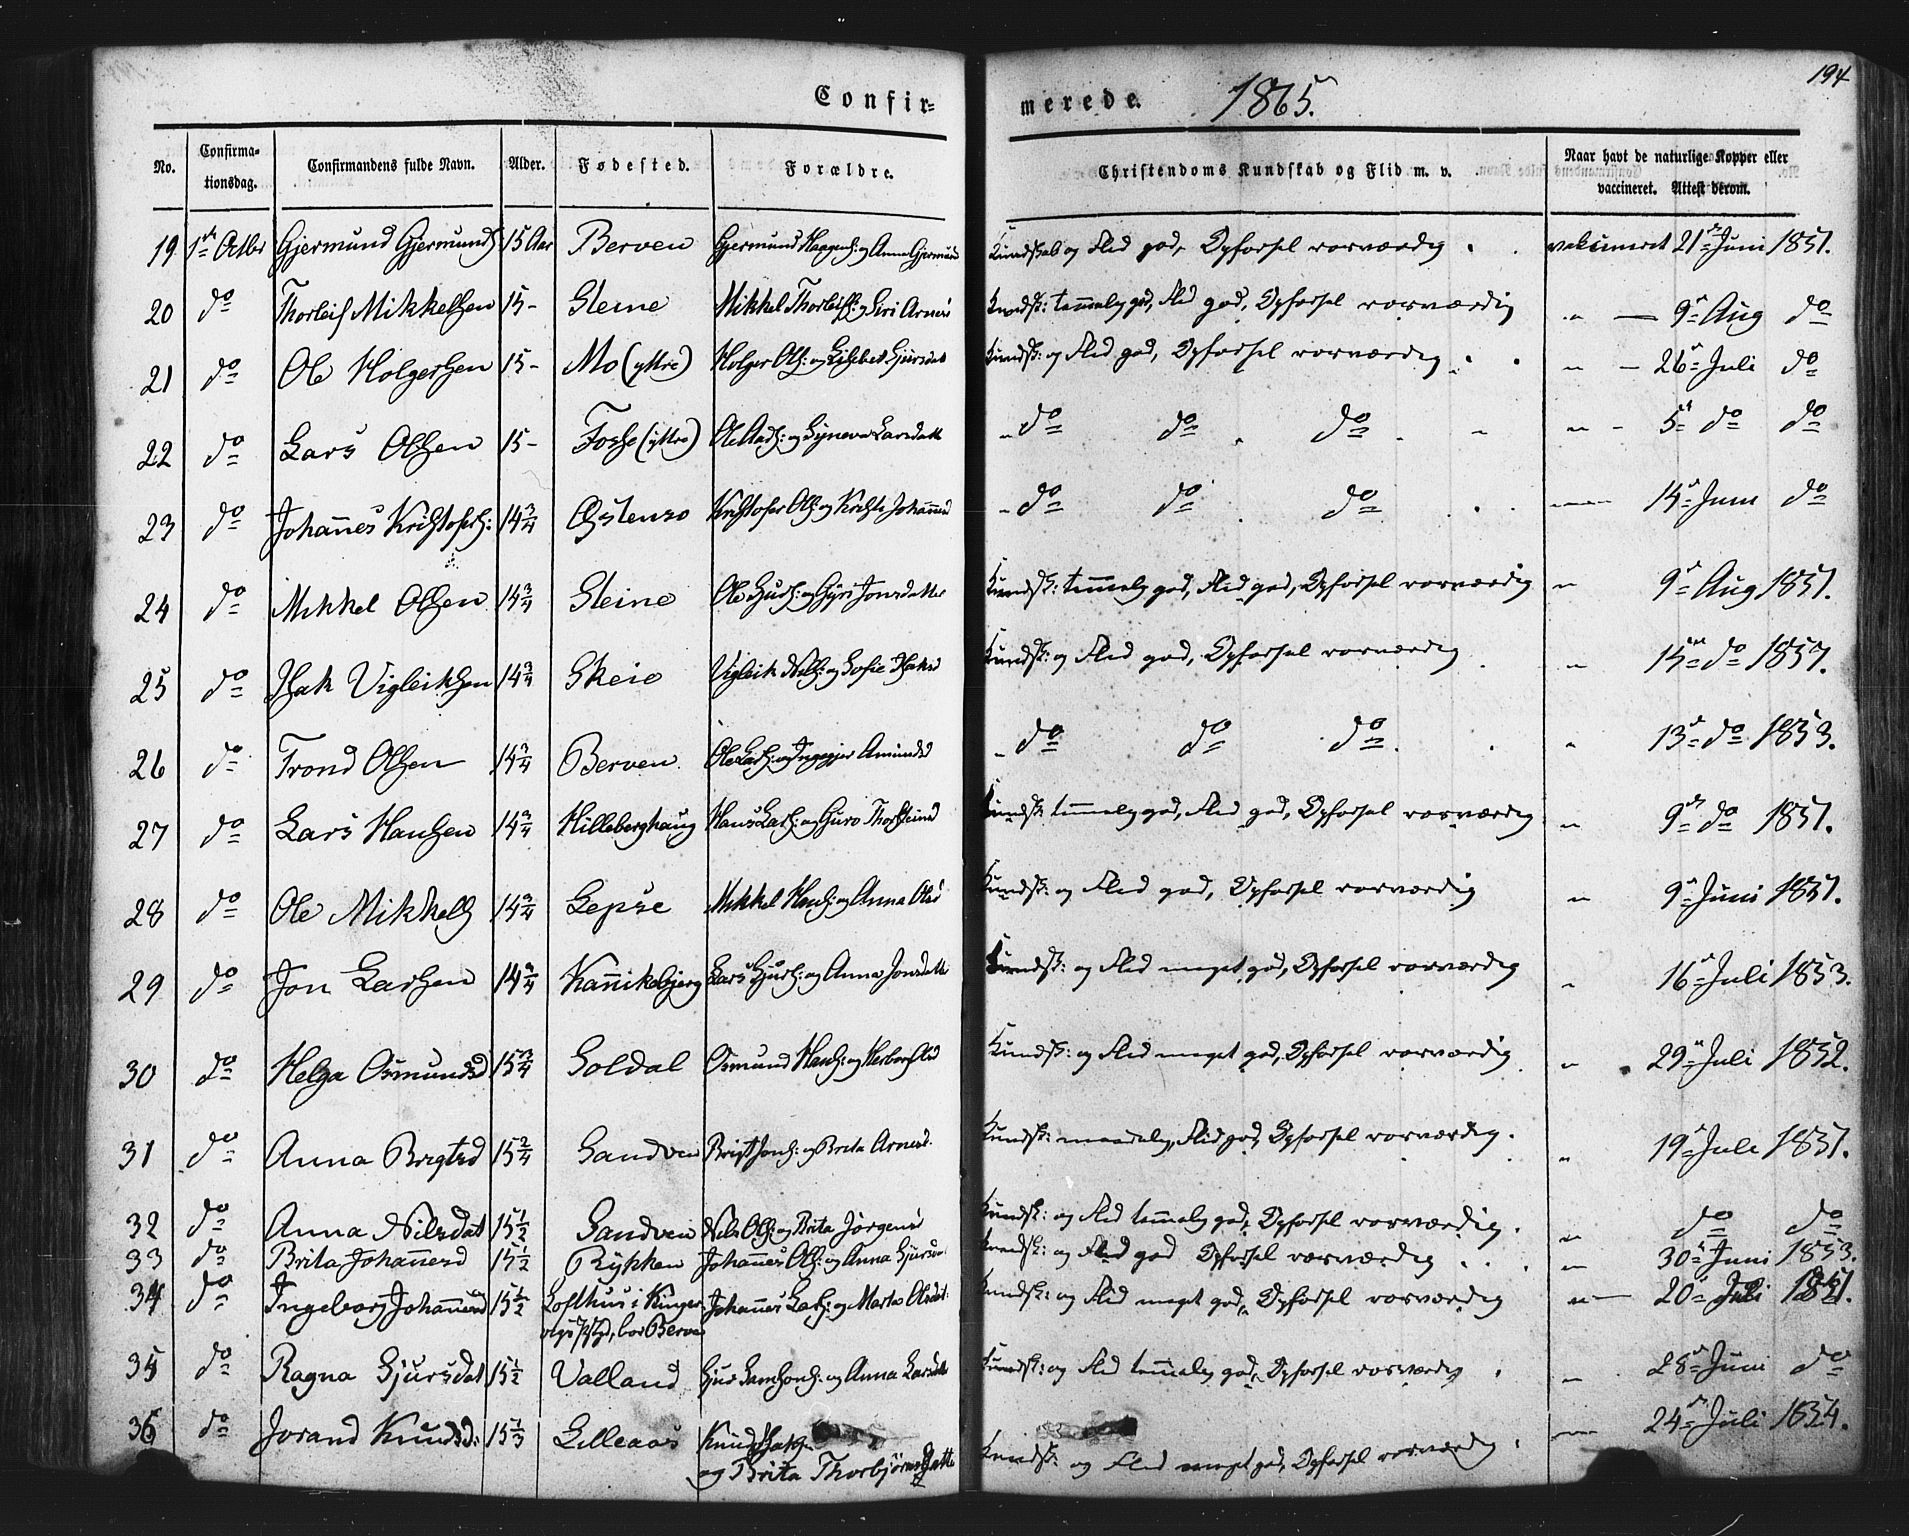 194
Confir- merede. 1865.
No. Confirma-tionsdag. Confirmandens fulde Navn. Alder. Fødested. Forældre. Christendoms Kundskab og Flid m. v. Naar havt de naturlige Kopper eller vaccineret. Attest derom.
19 1ste Octbr Gjermund Gjermunds 15 Aar Berven Gjermund Haagens: og Anna Gjermunds Kundskab og Flid god, Opførsel værværdig vaksineret 21de Juni 1851.
20 do Thorleif Mikkelsen 15 - Steine Mikkel Thorleifs: og Siri Arnes Kundsk: temmelig god, Flid god, Opførsel værværdig " — 9de Aug do
21 do Ole Holgersen 15 - Mo (yttre) Holger Ols: og Lisbet Sjursdat Kundsk: og Flid god, Opførsel værværdig " - 26de Juli do
22 do Lars Olsen 15 - Fosse (yttre) og Synneva Larsdatt " do do do " - 5te do do
23 do Johannes Kristofers: 14 3/4 Øystenso Kristofer Ols: og Kristi Johannesd " do do do 14de Juni do
24 do Mikkel Olsen 14 3/4 Steine Ole Sjurs: og Gyri Jonsdatter Kundsk: temmelig god, Flid god, Opførsel værværdig " 9de Aug 1851.
25 do Isak Vigleiksen 14 3/4 Skeie Vigleik Nils: og Sofie Isaksd Kundsk: og Flid god, Opførsel værværdig " 15de do 1857.
26 do Trond Olsen 14 3/4 Berven Ole Lars: og Ingegjer Amundsd " do do do " 13de do 1853.
27 do Lars Hansen 14 3/4 Hilleberghaug Hans Lars: og Guro Thorsteinsd Kundsk: temmelig god, Flid god, Opførsel værværdig " 9de do 1851.
28 do Ole Mikkels 14 3/4 Lepsøe Mikkel Hans: og Anna Olsd Kundsk: og Flid god, Opførsel værværdig " 9de Juni 1851.
29 do Jon Larsen 14 3/4 Kannikebjerg Lars Sjurs: og Anna Jonsdatt Kundsk: og Flid meget god, Opførsel værværdig " 16de Juli 1853.
30 do Helga Osmundsd 15 3/4 Soldal Osmund Hans: og Herborg Kundsk: og Flid meget god, Opførsel værværdig " 29de Juli 1852.
31 do Anna Brigtsd 15 2/4 Sandven Brigt Jons: og Brita Arnesd. Kundsk: maadelig, Flid god, Opførsel værværdig. " 19de Juli 1851.
32 do Anna Nilsdat 15 1/2 Sandven Nils Ols: og Brita Jørgensd Kundsk: og Flid temmelig god, Opførsel værværdig. " do do
33 do Brita Johannesd 15 1/2 Rykken Johannes Ols: og Anna Sjursd Kundsk: og Flid god Opførsel værværdig " 30te Juni 1853.
34 do Ingeborg Johannesd 15 1/2 Lofthus i Kinser-vigs Pstgd, bor Berven Johannes Lars: og Marta Olsdat: Kundsk: og Flid meget god, Opførsel værværdig " — 20de Juli 1851.
35 do Ragna Sjursdat 15 1/2 Valland Sjur Samsons: og Anna Larsdatt Kundsk: og Flid temmelig god, Opførsel værværdig " 28de Juni do
36 do Jorand Knudsd: 15 1/3 Lilleaas Knud
og Brita Thorbjørnsdatter Kundsk: og Flid meget god, Opførsel værværdig 24de Juli 1854.